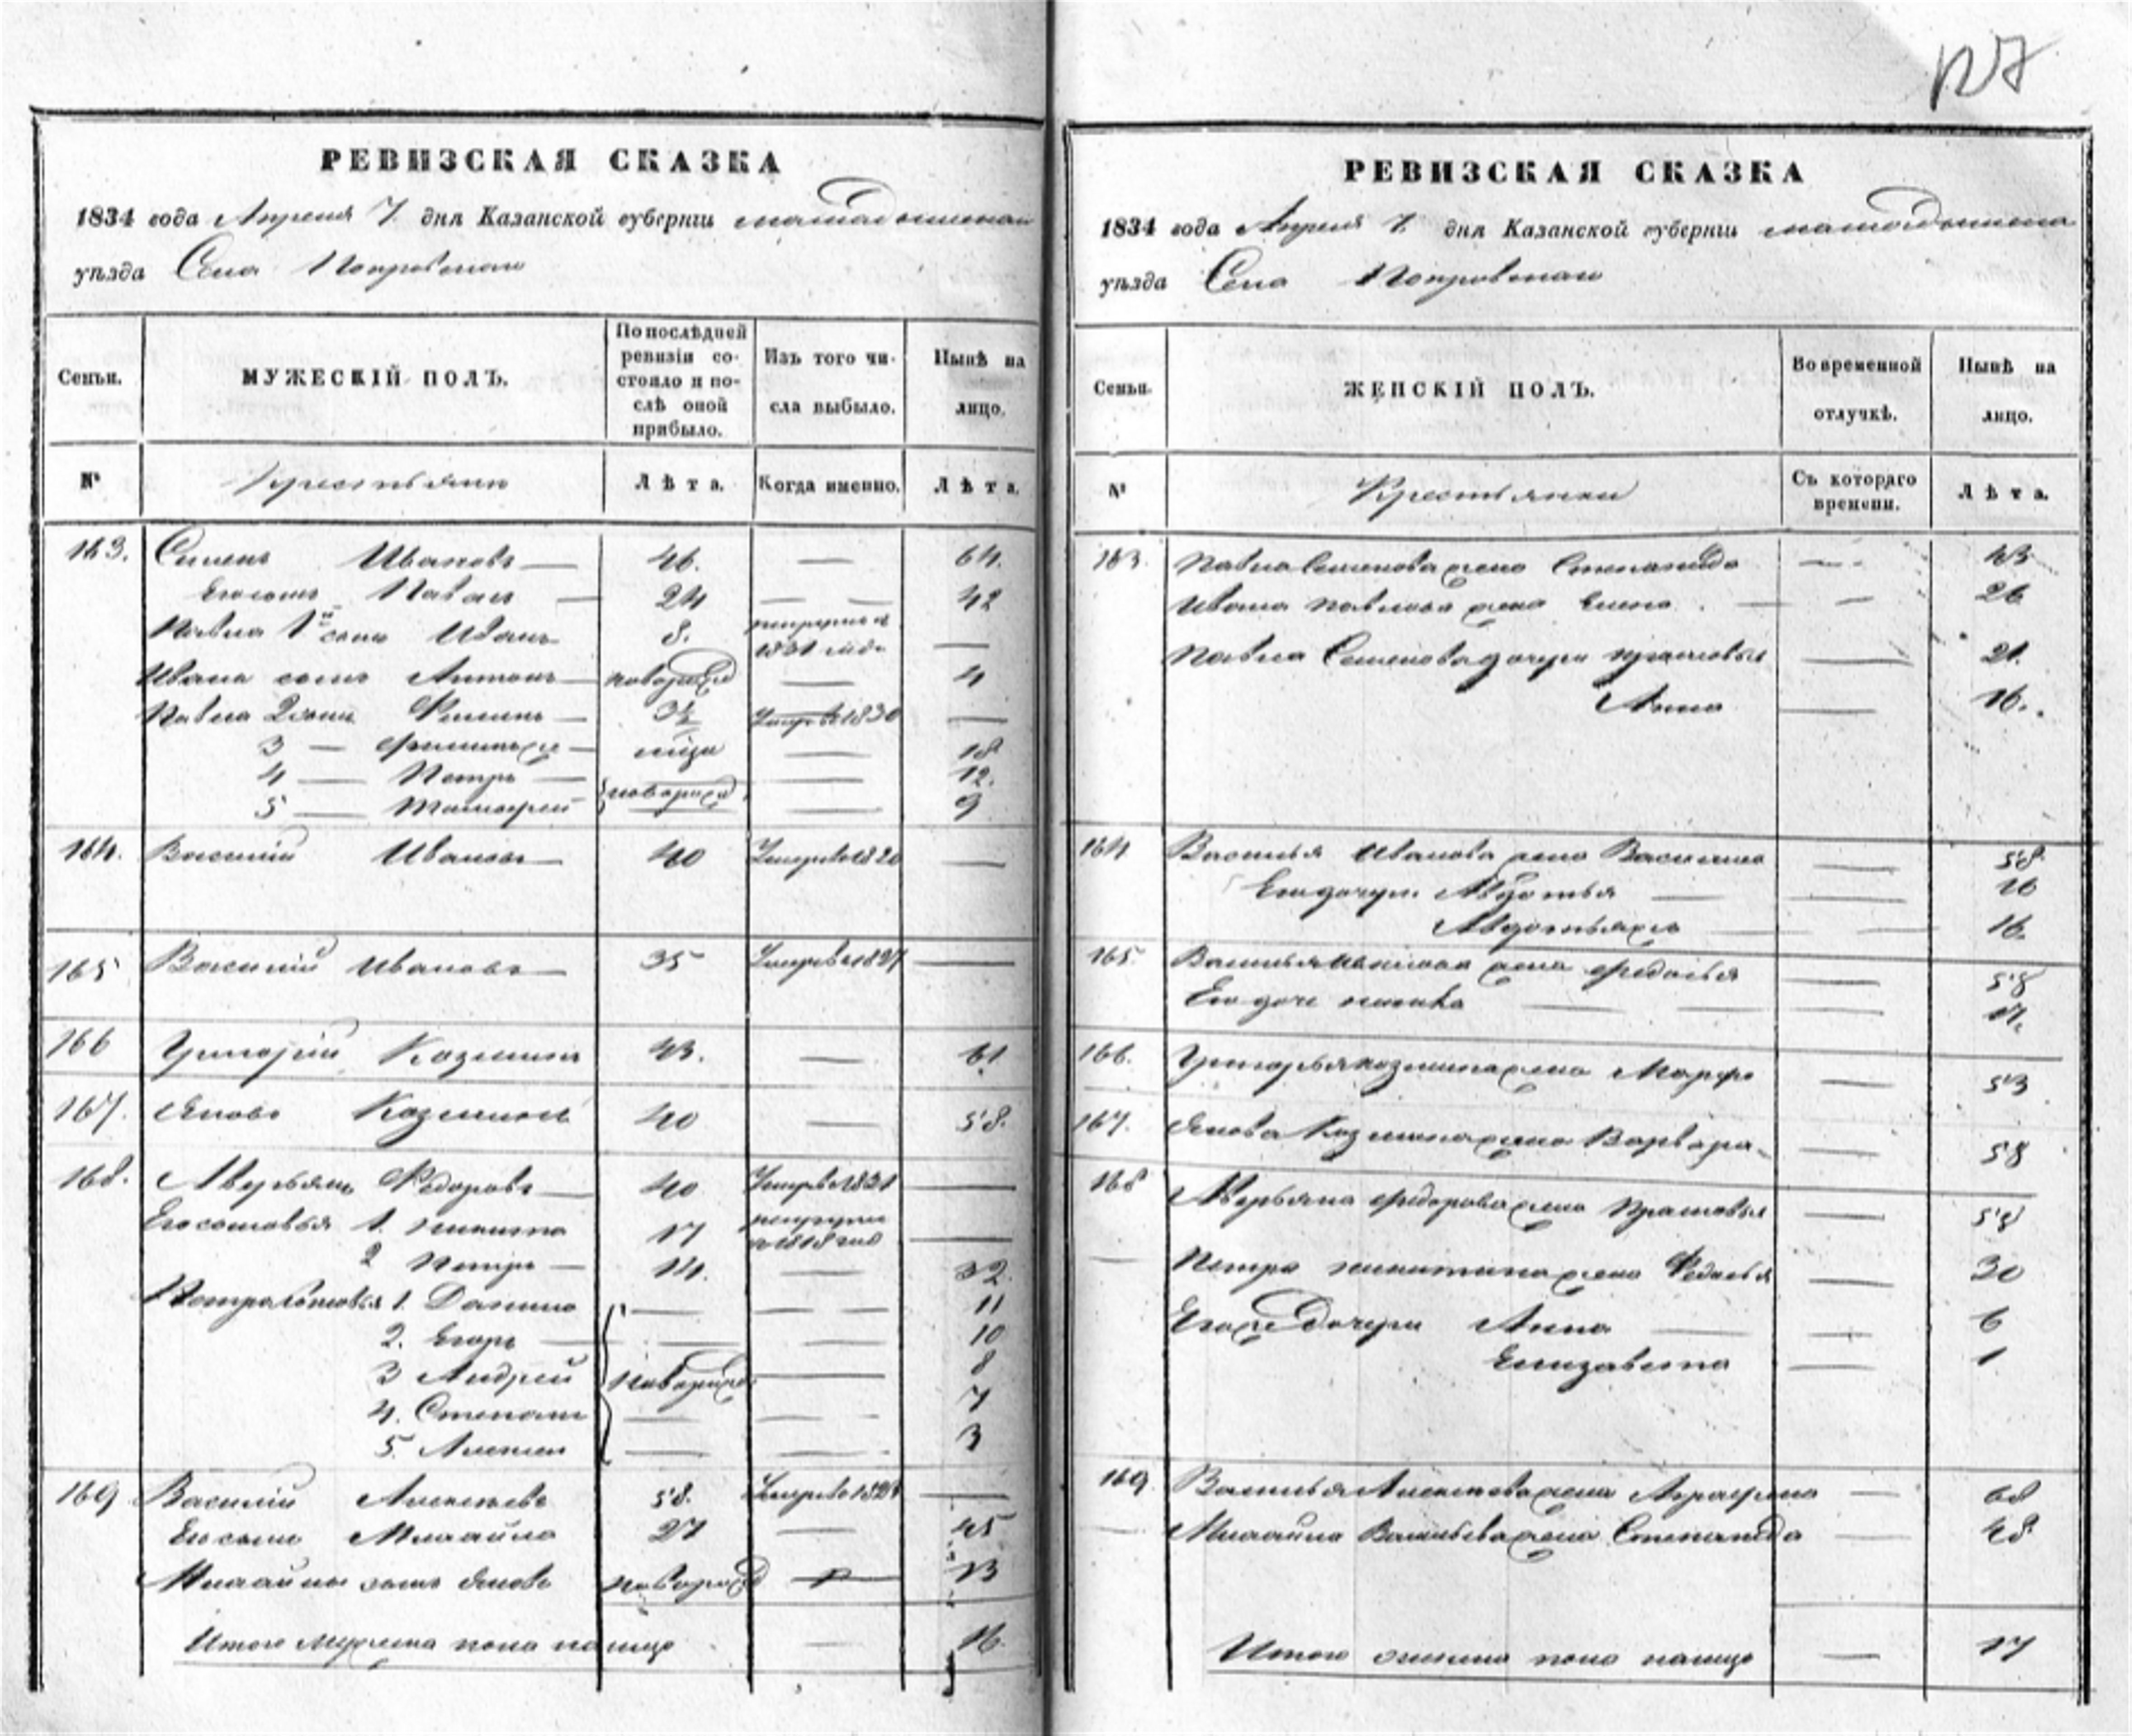 127
РЕВИЗСКАЯ СКАЗКА
1834 года Апреля 7. дня Казанской губерніи мамадышскаго
уѣзда Села Покровскаго
Семьи.
МУЖЕСКІЙ ПОЛЪ.
По послѣдней ревизіи состояло и послѣ оной прибыло.
Изъ того числа выбыло.
Нынѣ на лицо.
№
Крестьяне
Лѣта.
Когда именно.
Лѣта.
163. Семенъ Ивановъ 46. 64.
Его сынъ Павелъ 24 42
Павла 1й сынъ Иванъ 8.
1831 года
Ивана сынъ Антонъ новорожд 4
Павла 2 сынъ 3½ Умер в 1830
3 18
4 Петръ новорожд 12.
5 Тимофей 9
164. Василій Ивановъ 40 Умер в 1820
165 Василій Ивановъ 35 Умер в 1827
166 Григорій Козминъ 43. 61
167. Яковъ Козминъ 40 58.
168. Аверьянъ Федоровъ 40 Умер в 1821
Его сыновья 1. никита 17 в 1818 год
2 Петръ 14. 32.
Петра сыновья 1. Данило 11
2. Егоръ 10
3 Андрей новорожд 8
4. Степанъ 7
5. Алексей 3
169 Василій Алексеевъ 58. Умер в
Его сынъ Михайло 27 45
Михайлы сынъ Яковъ новорожд 13
Итого мужеска пола на лицо 16.
РЕВИЗСКАЯ СКАЗКА
1834 года Апреля 7. дня Казанской губерніи мамадышскаго
уѣзда Села Покровскаго
Семьи.
ЖЕНСКІЙ ПОЛЪ.
Во временной отлучкѣ.
Нынѣ на лицо.
№
Крестьянки
Съ котораго времени.
Лѣта.
163. Павла Семенова жена Степанида 43
Ивана павлова жена Елена 26
Павла Семенова дочери прасковья 21.
Анна 16.
164 Василья Иванова жена 58
Его дочери Авдотья
Авдотья же 16.
165. Василья Иванова жена федосья 58
Его дочь
166. Григорья козмина жена Марфа 53
167. Якова Козмина жена Варвара 58
168 Аверьяна федорова жена прасковья 58
Петра никитина жена Федосья 30
Его же Дочери Анна 6
Елизавета 1
169. Василья Алексеева жена Аграфена 68
Михайла Васильева жена Степанида 48
Итого женска пола налицо 17